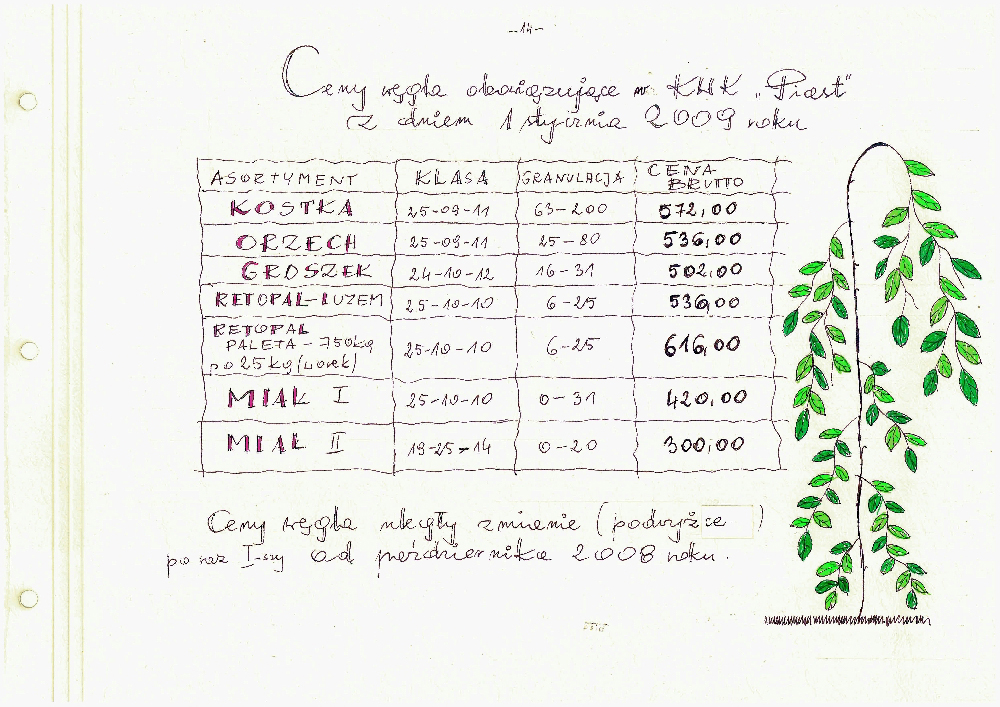 -14-
Ceny węgla obowiązujące w KHK „Piast"
z dniem 1 stycznia 2009 roku
ASORTYMENT KLASA GRANULACJA CENA BRUTTO
KOSTKA 25-09-11 63-200 572,00
ORZECH 25-09-11 25-80 536,00
GROSZEK 24-10-12 16-31 502,00
RETOPAL-LUZEM 25-10-10 6-25 536,00
RETOPAL
PALETA-750kg 25-10-10 6-25 616,00
po 25kg (worek)
MIAŁ I 25-10-10 0-31 420,00
MIAŁ II 19-25-14 0-20 300,00
Ceny węgla uległy zmianie (podwyżce)
po raz I-szy od października 2008 roku.